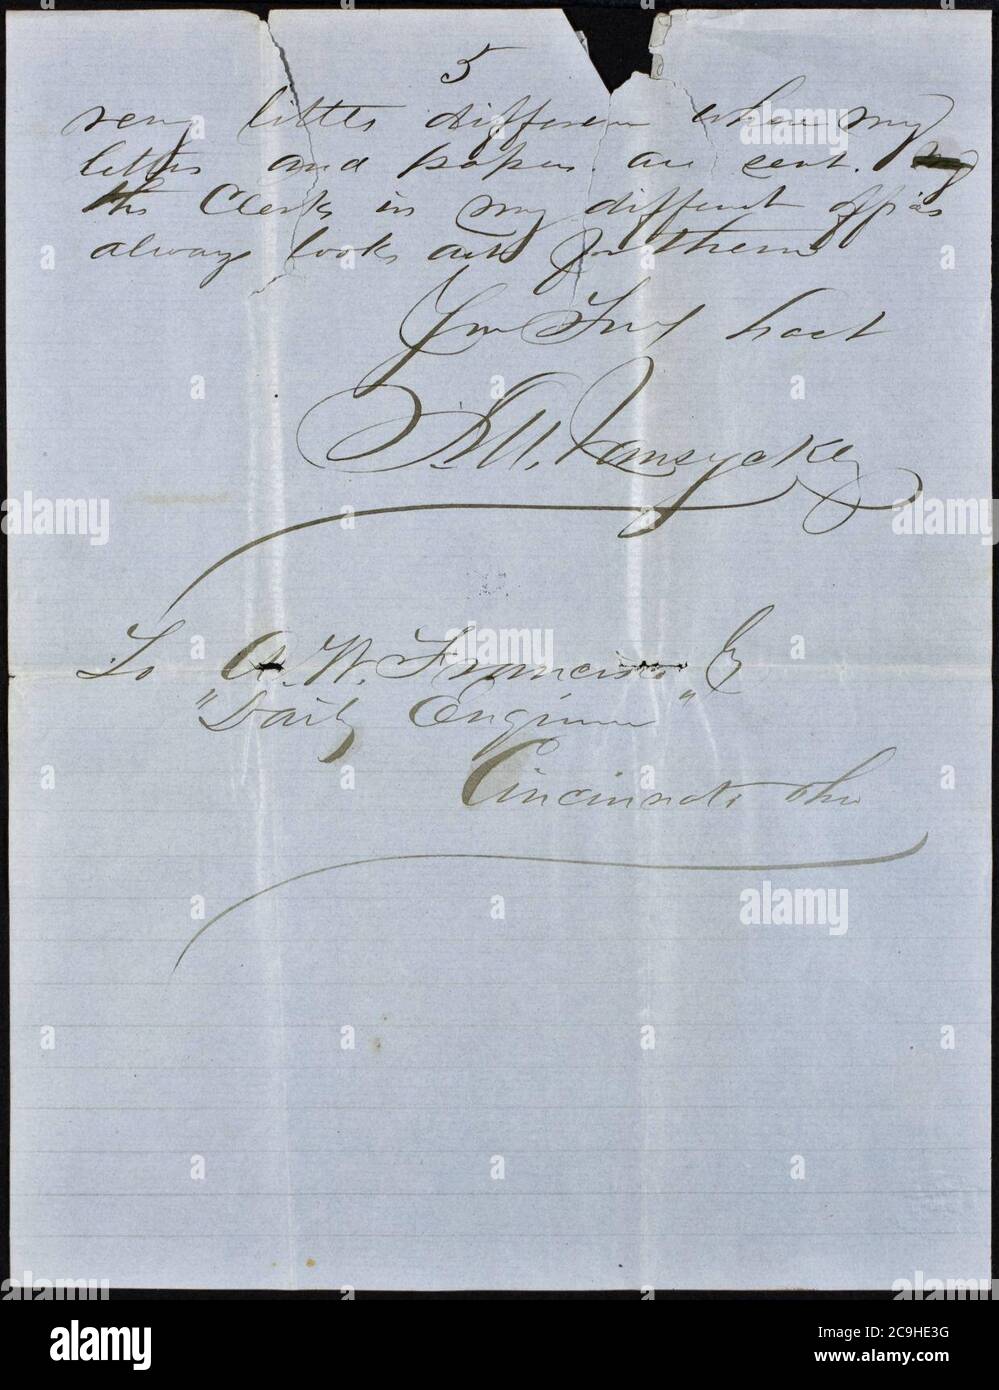 5
very little difference where my
letters and papers are sent.
the Clerks in my different offices
always looks out for them
Yours Truly
To A. W. Francisco
"Daily Enquirer"
Cincinnati Ohio
alamy
Image ID: 2C9HE3G
www.alamy.com